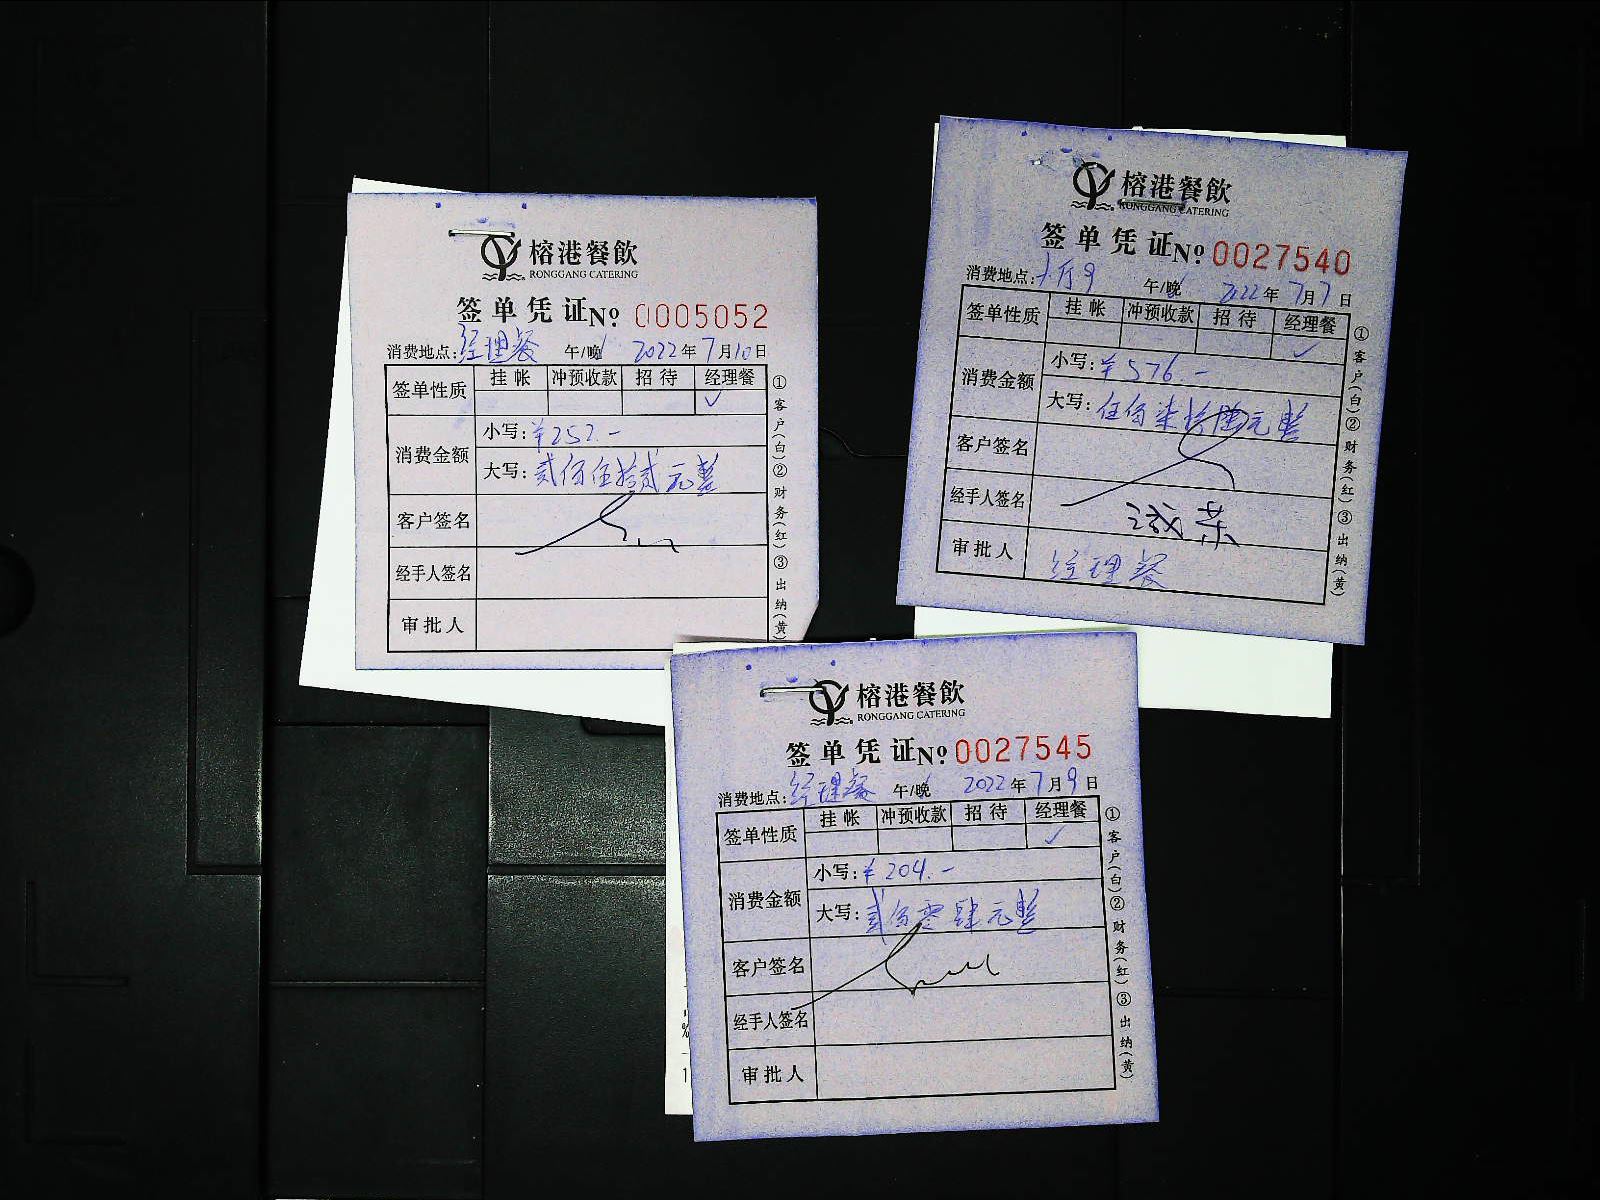 榕港餐飲
RONGGANG CATERING
签单凭证 No 0005052
消费地点：经理餐 午/晚 2022年7月10日
签单性质 挂帐 冲预收款 招待 经理餐
✓
消费金额 小写：¥252.-
大写：贰佰伍拾贰元整
客户签名
经手人签名
审批人
①客户(白)②财务(红)③出纳(黄)
榕港餐飲
RONGGANG CATERING
签单凭证 No 0027540
消费地点： 午/晚 2022年7月7日
签单性质 挂帐 冲预收款 招待 经理餐
✓
消费金额 小写：¥576.-
大写：伍佰柒拾陆元整
客户签名
经手人签名
审批人 经理餐
①客户(白)②财务(红)③出纳(黄)
榕港餐飲
RONGGANG CATERING
签单凭证 No 0027545
消费地点：经理餐 午/晚 2022年7月9日
签单性质 挂帐 冲预收款 招待 经理餐
✓
消费金额 小写：¥204.-
大写：贰佰零肆元整
客户签名
经手人签名
审批人
①客户(白)②财务(红)③出纳(黄)